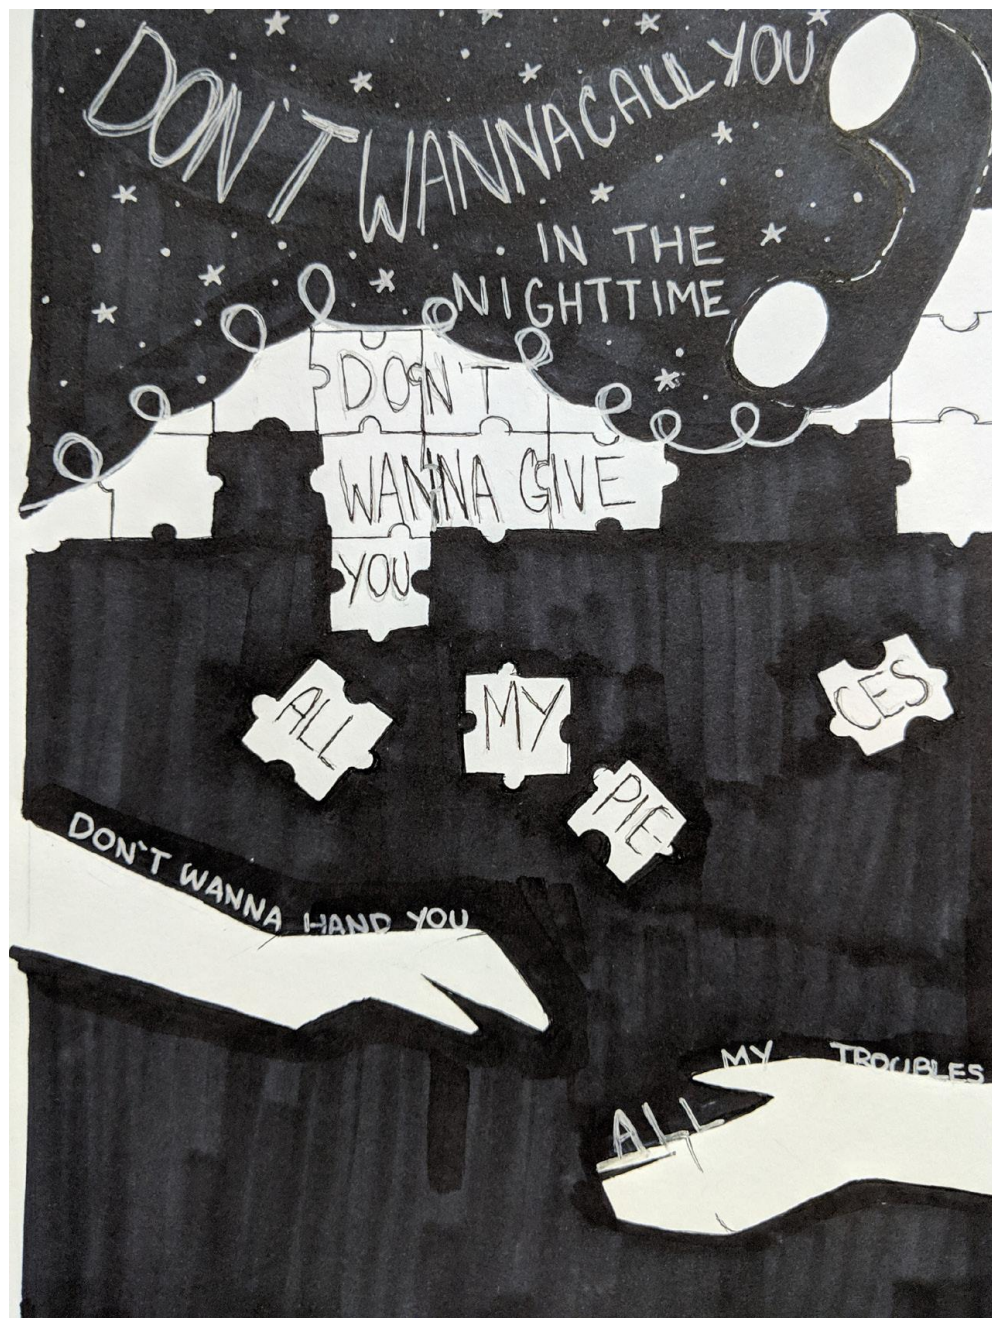 DON'T WANNA CALL YOU
IN THE
NIGHTTIME
DON'T
WANNA GIVE
YOU
ALL
MY
PIE
CES
DON'T WANNA HAND YOU
ALL
MY TROUBLES